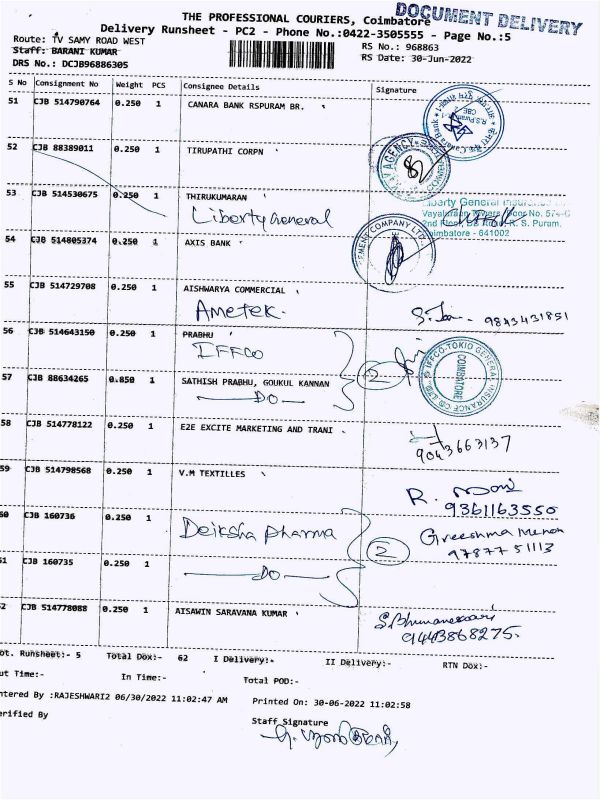 DOCUMENT DELIVERY
THE PROFESSIONAL COURIERS, Coimbatore
Delivery Runsheet - PC2 - Phone No.:0422-3505555 - Page No.:5
Route: TV SAMY ROAD WEST
RS No.: 968863
Staff: BARANI KUMAR
RS Date: 30-Jun-2022
DRS No.: DCJB96886305
S No Consignment No Weight PCS Consignee Details Signature
51 CJB 514790764 0.250 1 CANARA BANK RSPURAM BR.
52 CJB 88389011 0.250 1 TIRUPATHI CORPN
53 CJB 514530675 0.250 1 THIRUKUMARAN
Liberty General
Liberty General Insurance
Vayalaram Towers Door No: 574-C
2nd Floor, DB Road, R. S. Puram,
Coimbatore - 641002
54 CJB 514805374 0.250 1 AXIS BANK
55 CJB 514729708 0.250 1 AISHWARYA COMMERCIAL
Ametek. 9843431851
56 CJB 514643150 0.250 1 PRABHU
IFFCO
2
IFFCO-TOKIO GENERAL INSURANCE CO LTD
COIMBATORE
57 CJB 88634265 0.850 1 SATHISH PRABHU, GOUKUL KANNAN
DO
58 CJB 514778122 0.250 1 E2E EXCITE MARKETING AND TRANI
9043663137
59 CJB 514798568 0.250 1 V.M TEXTILLES
R.
9361163550
60 CJB 160736 0.250 1
Deiksha Pharma
2
Greeshma Menon
97877 51113
61 CJB 160735 0.250 1
DO
62 CJB 514778088 0.250 1 AISAWIN SARAVANA KUMAR
S. Bhuvaneswari
9443868275.
ot. Runsheet:- 5 Total Dox:- 62 I Delivery:- II Delivery:- RTN Dox:-
ut Time:- In Time:- Total POD:-
ntered By :RAJESHWARI2 06/30/2022 11:02:47 AM Printed On: 30-06-2022 11:02:58
erified By
Staff Signature